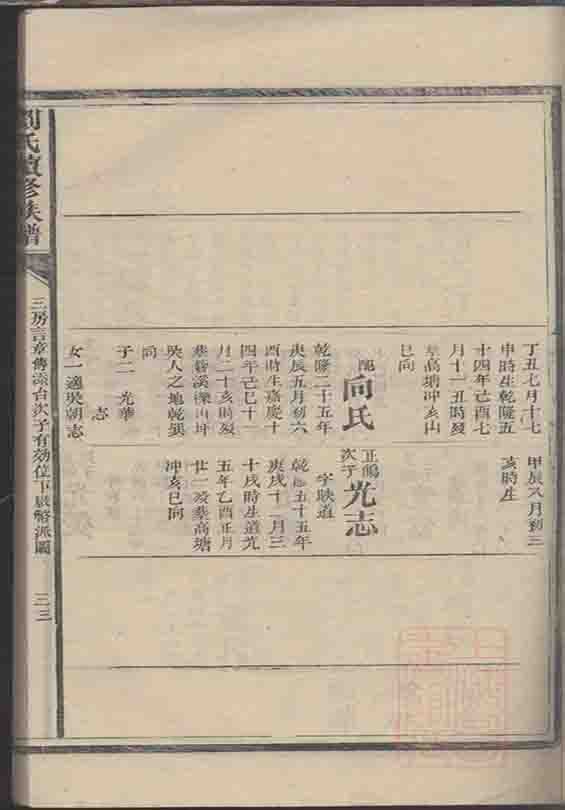 丁丑七月十七
申時生乾隆五
十四年己酉七
月十一丑時歿
葬高塘冲亥山
巳向
配向氏
乾隆二十五年
庚辰五月初六
酉時生嘉慶十
四年己巳十一
月二十亥時歿
山坤
人之地乾巽
向
子二 光華
志
女一適吳朝志
甲辰八月初三
亥時生
次子光志
字映道
乾隆五十五年
庚戌十一月三
十戌時生道光
五年乙酉正月
廿一歿葬高塘
冲亥巳向
氏續修族譜
三房言章傳添台次子有効位下派圖
三三